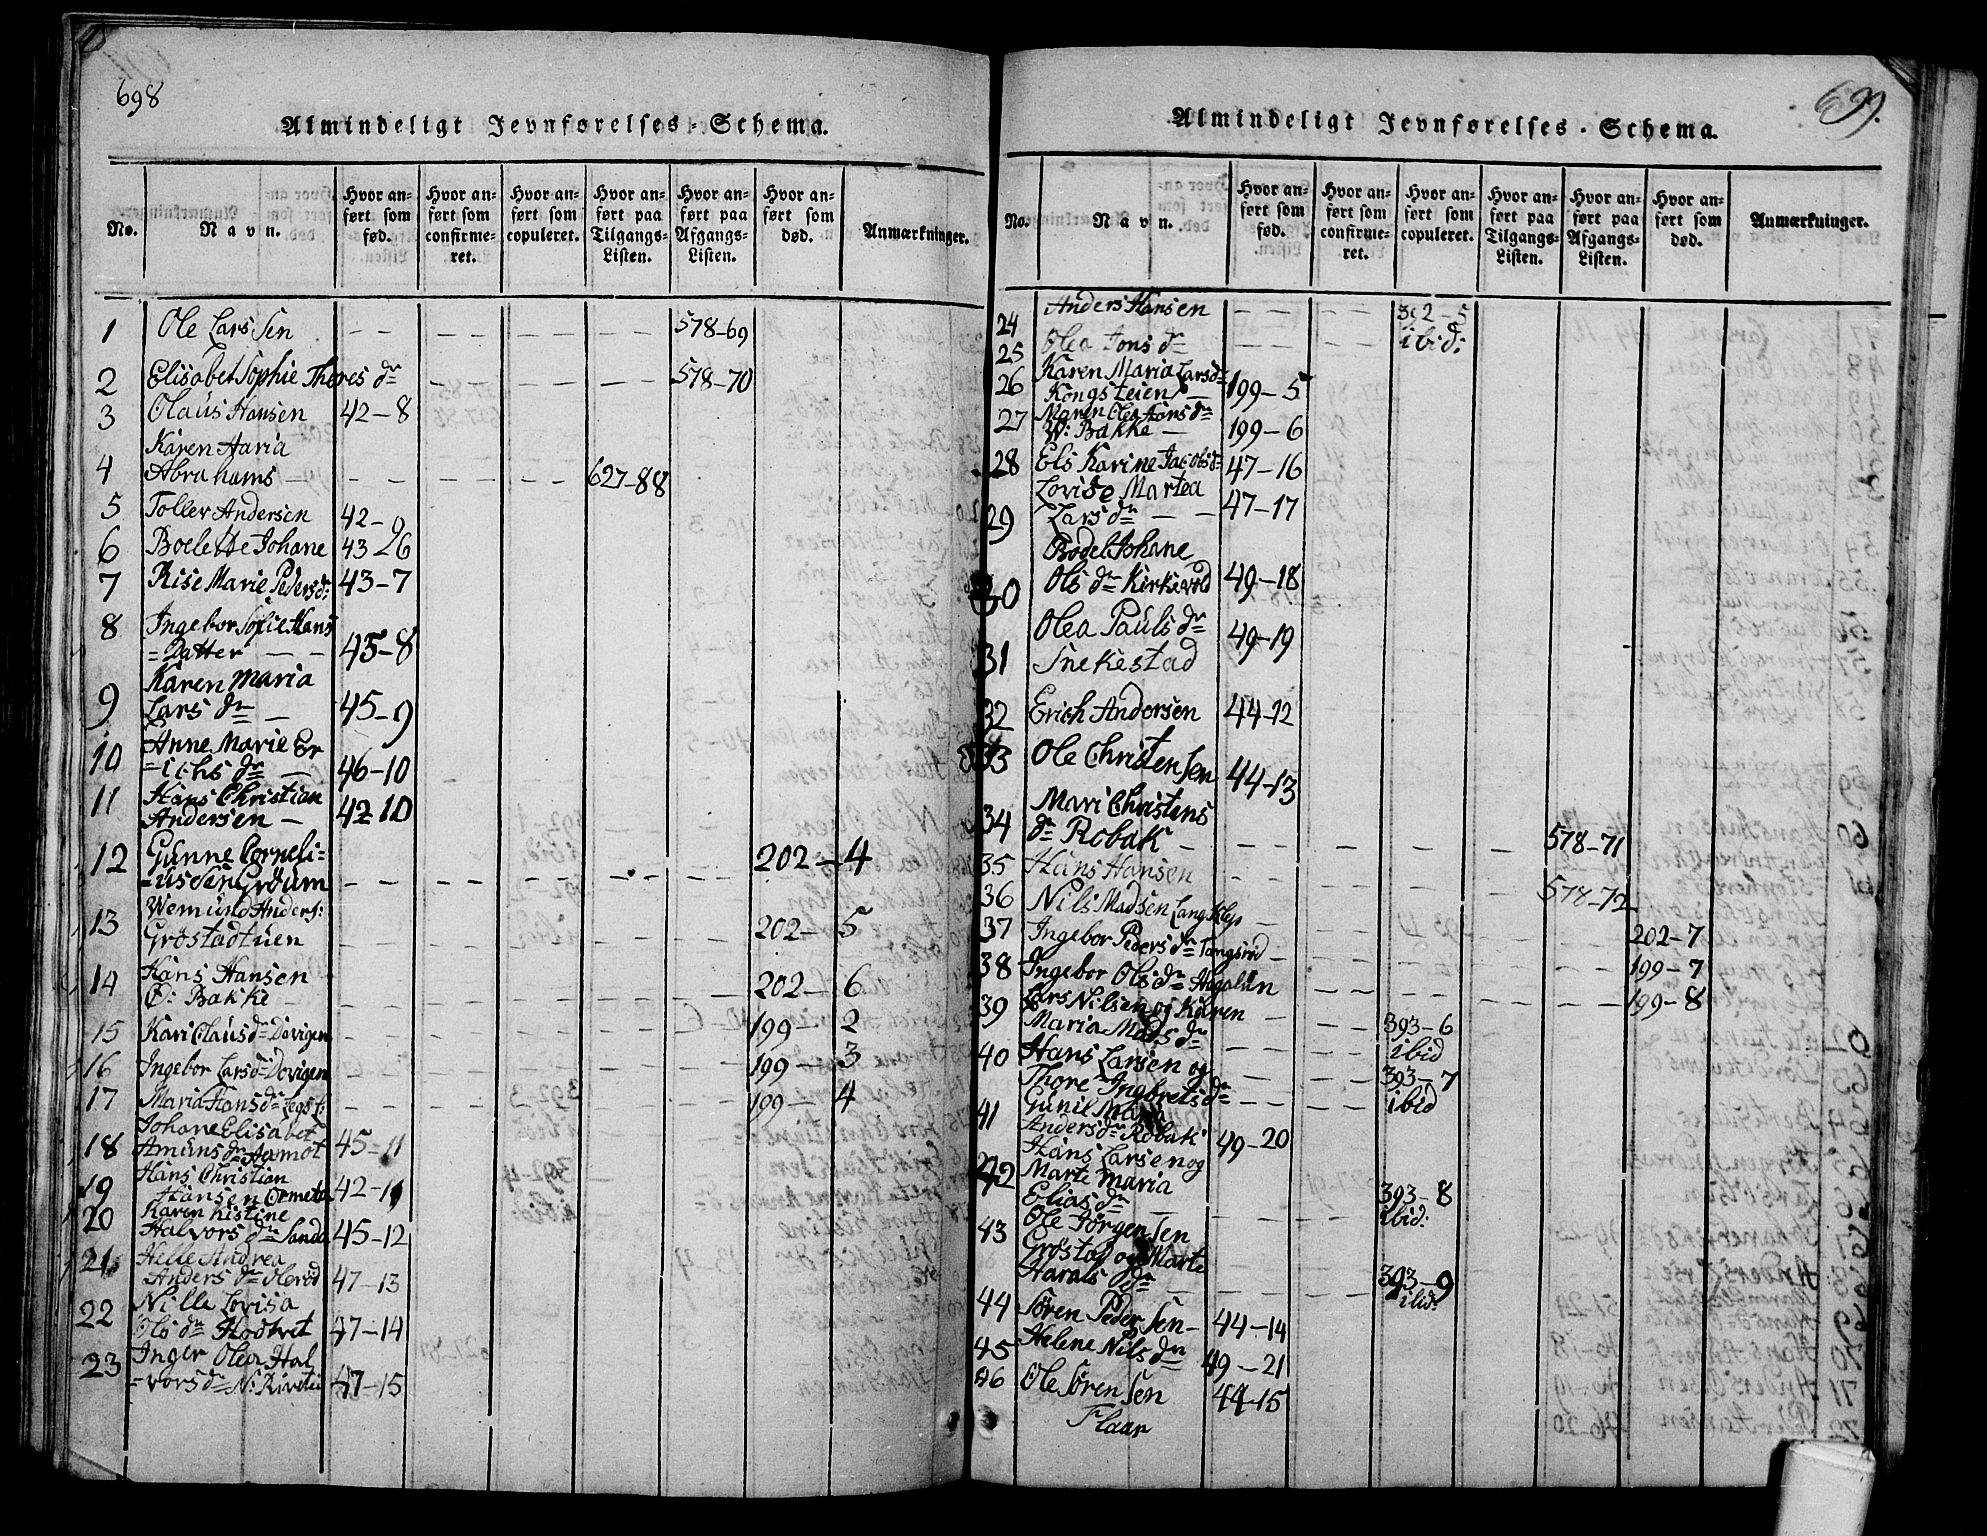 698
Almindeligt Jevnførelses-Schema.
No. Navn. Hvor anført som fød. Hvor anført som confirmeret. Hvor anført som copuleret. Hvor anført paa Tilgangs-Listen. Hvor anført paa Afgangs-Listen. Hvor anført som død. Anmærkninger.
1 Ole Larssen 578-69
2 Elisabet Sophie Thores dr 578-70
3 Olaus Hansen 42-8
Karen Maria
4 Abrahams 627-88
5 Toller Andersen 42-9
6 Boelette Johane 43 26
7 Rise Marie Pedersdr: 43-7
8 Ingebor Sofie Hans
=Datter 45-8
Karen Maria
9 Lars dr 45-9
Anne Marie Er
10 =ichs dr 46-10
11 Hans Christian
Andersen 42 10
12 Gunne Corneli=
=ussen Groum 202-4
Wemund Anders:
13 Grøstadtuen 202-5
14 Hans Hansen
Ø: Bakke 202-6
15 Kari Claus dr Dovigen 199-2
16 Ingebor Lars dr Dovigen 199-3
17 Maria Hans dr 199-4
Johane Elisabet
18 Amuns dr Aamot 45-11
Hans Christian
19 Hansen 42-11
20 Karen Kistine
Halvors dr Sanda 45-12
21 Helle Andrea
Anders dr Olerød 47-13
22 Nille Lovisa
Ols dr Hodtvet 47-14
23 Inger Olea Hal
=vors dr N: 47-15
699.
Almindeligt Jevnførelses-Schema.
No. Navn. Hvor anført som fød. Hvor anført som confirmeret. Hvor anført som copuleret. Hvor anført paa Tilgangs-Listen. Hvor anført paa Afgangs-Listen. Hvor anført som død. Anmærkninger.
24 Anders Hansen 392-5
25 Olea Jons dr ibid:
26 Karen Maria Larsdr
Kongsteien 199-5
27 Maren Olea Hansdr
W: Bakke 199-6
28 Els Karine Jacobsdr 47-16
Lovise Martea
29 Lars dr 47-17
Bodel Johane
30 Ols dr Kirkevold 49-18
Olea Pauls dr 49-19
31 Snekestad
32 Erich Andersen 44-12
33 Ole Christensen 44-13
Mari Christens
34 dr Robak 578-71
35 Hans Hansen 578-72
36 Nils Madsen 202-7
37 Ingebor Peders dr 199-7
38 Ingebor Ols dr 199-8
39 Lars Nilsen og Karen 393-6
Maria Mads dr ibid
40 Hans Larsen og 393-7
Thore Ingbrets dr ibid
41 Gunil Maria
Anders dr Robak 49-20
42 Hans Larsen og
Marte Maria 393-8
Elias dr ibid:
43 Ole Jørgensen
Grøstad og Marte
Harals dr 393-9
ibid:
44 Søren Pedersen 44-14
45 Helene Nils dr 49-21
46 Ole Sørensen 44-15
Flaar